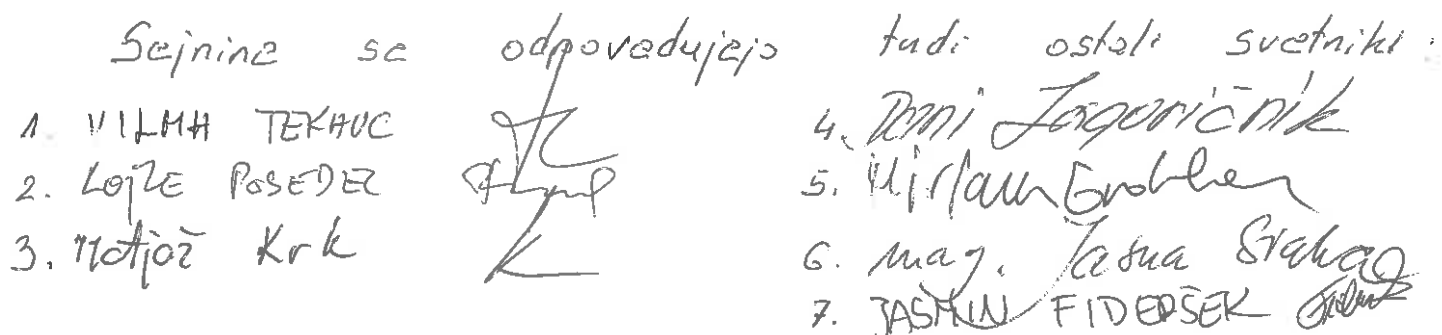 Sejnine se odpovedujejo tudi ostali svetniki:
1. VILMA TEKAUC
2. LOJZE POSEDEL
3. Matjaž Krk
4. Domi Zagoričnik
5. Mirjam
6. mag. Jasna
7. JASMIN FIDERŠEK